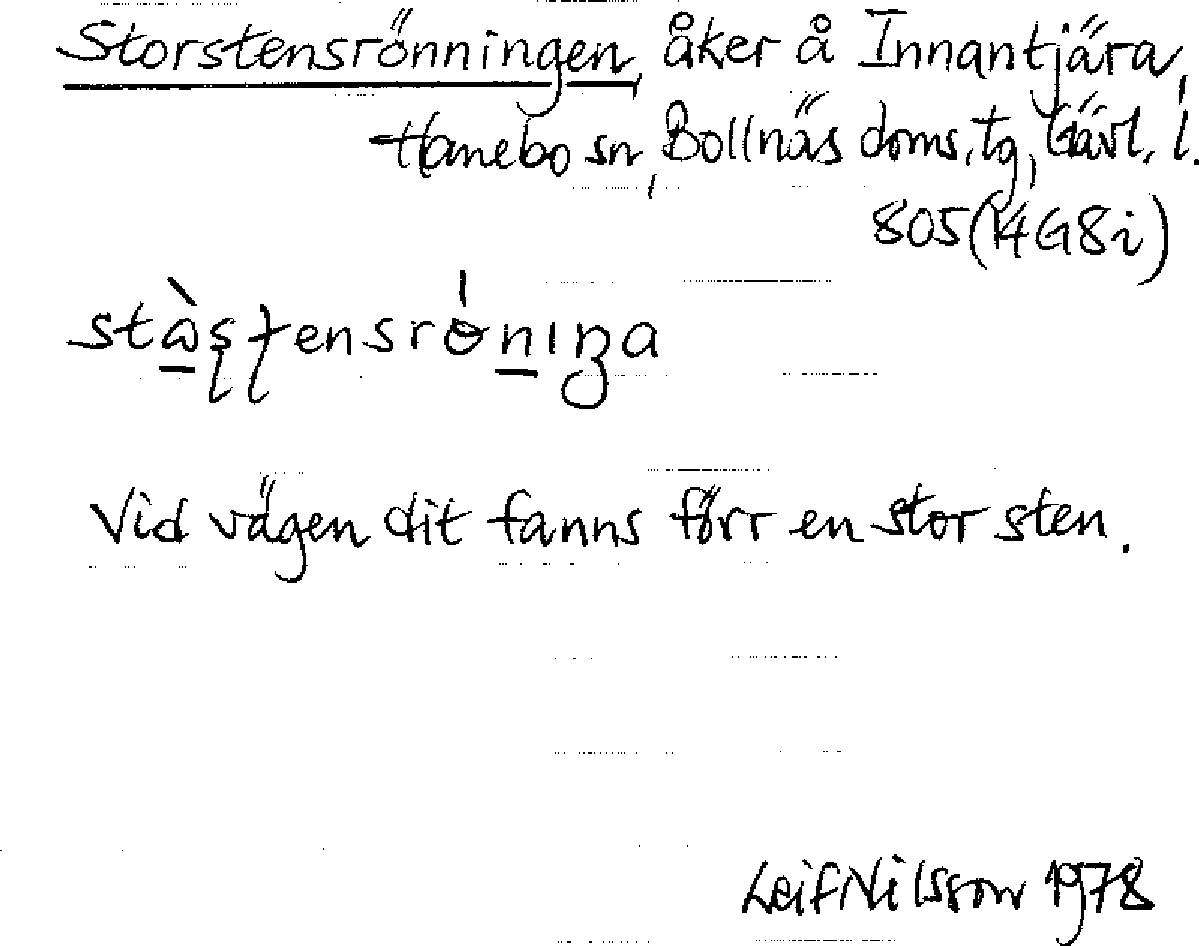 Storstensrönningen, åker å Innantjära,
Hanebo sn, Bollnäs doms. tg, Gävl. l.
805 (14G8i)
Vid vägen dit fanns förr en stor sten.
Leif Nilsson 1978